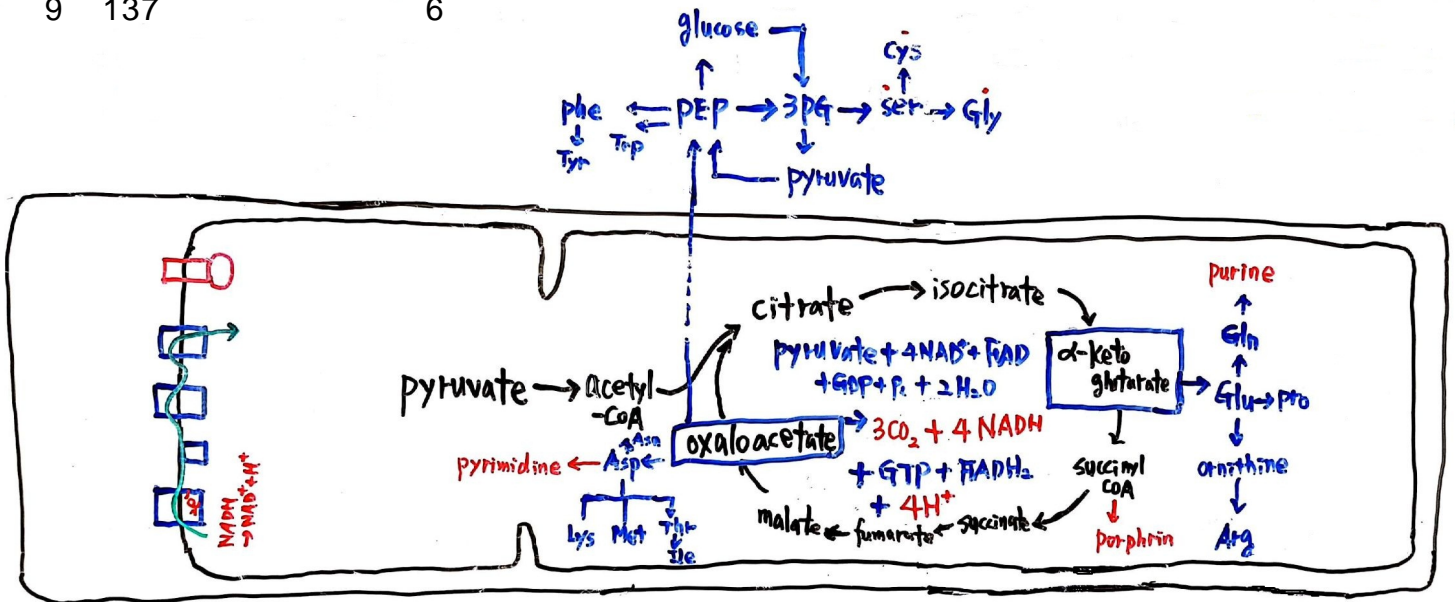 9 137 6
glucose
Cys
phe
PEP
3PG
ser
Gly
Tyr
Trp
pyruvate
purine
citrate
isocitrate
Gln
pyruvate + 4NAD⁺ + FAD
+ GDP + Pi + 2H₂O
α-keto
glutarate
pyruvate
acetyl
-CoA
Glu
pro
oxaloacetate
3CO₂ + 4 NADH
Asn
pyrimidine
Asp
+ GTP + FADH₂
+ 4H⁺
succinyl
CoA
ornithine
NADH
→NAD⁺+H⁺
2e⁻
Lys
Met
Thr
Ile
malate
fumarate
succinate
porphrin
Arg